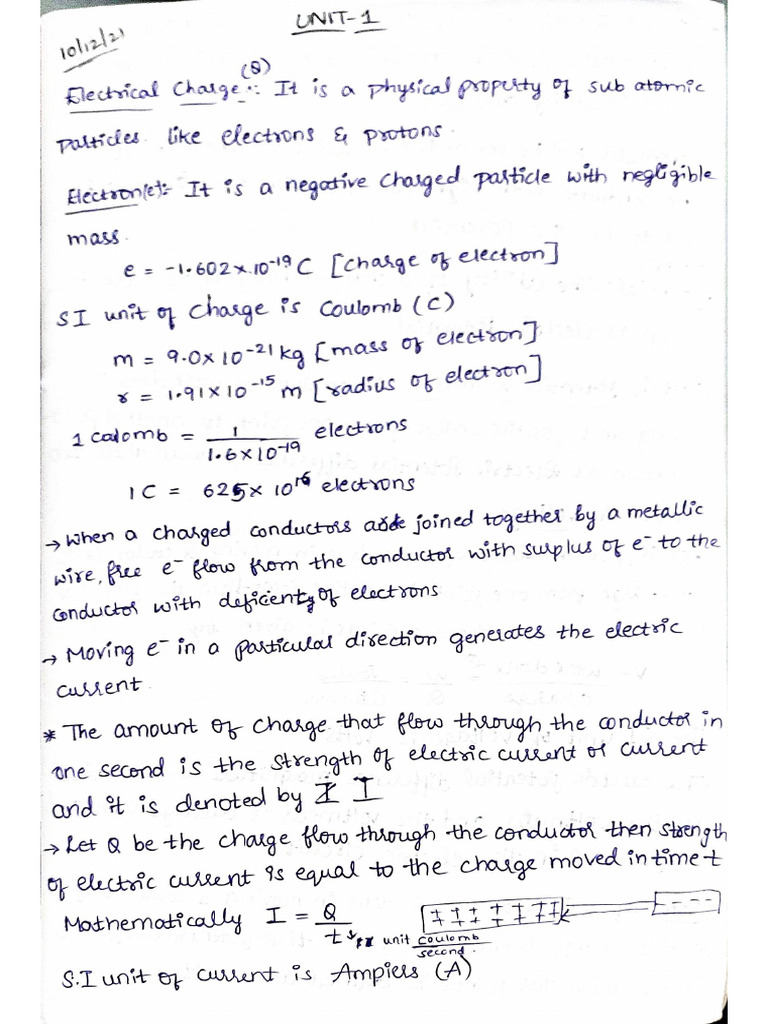 UNIT-1
10/12/21
(Q)
Electrical Charge:- It is a physical property of sub atomic
particles like electrons & protons.
Electron(e):- It is a negative charged particle with negligible
mass.
e = -1.602×10⁻¹⁹ C [charge of electron]
SI unit of charge is Coulomb (C)
m = 9.0×10⁻²¹ kg [mass of electron]
r = 1.91×10⁻¹⁵ m [radius of electron]
1 calomb = 1/1.6×10⁻¹⁹ electrons
1C = 625×10¹⁶ electrons
→ When a charged conductors are joined together by a metallic
wire, free e⁻ flow from the conductor with surplus of e⁻ to the
conductor with deficienty of electrons
→ Moving e⁻ in a particular direction generates the electric
current.
* The amount of charge that flow through the conductor in
one second is the strength of electric current or current
and it is denoted by I I
→ Let Q be the charge flow through the conductor then strength
of electric current is equal to the charge moved in time t
Mathematically I = Q/t → unit coulomb/second.
S.I unit of current is Ampiers (A)